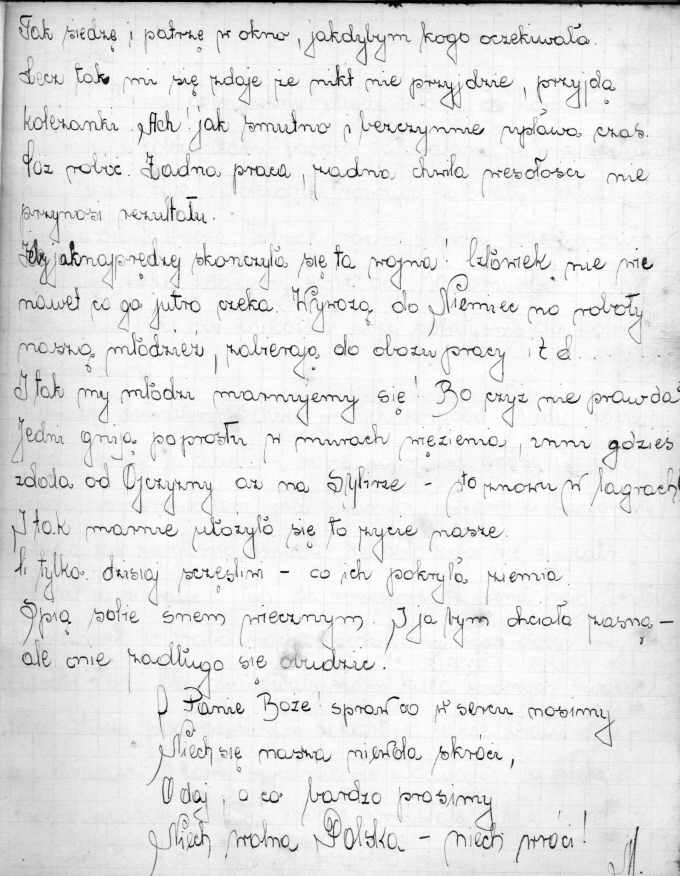 Tak siedzę i patrzę w okno, jakdybym kogo oczekiwała.
Lecz tak mi się zdaje że nikt nie przyjdzie, przyjdą
koleżanki. Ach! jak smutno i bezczynnie upływa czas.
Cóż robić. Żadna praca, żadna chwila wesołości nie
przynosi rezultatu.
Żeby jaknajprędzej skonczyła się ta wojna! Człowiek nie wie
nawet co go jutro czeka. Wywożą do Niemiec na roboty
naszą młodzież, zabierają do obozu pracy i t d....
I tak my młodzi marnujemy się! Bo czyż nie prawda?
Jedni gniją poprostu w murach więzienia, inni gdzieś
zdala od Ojczyzny aż na Sybirze - to znowu w łagrach!
I tak marnie ułożyło się to życie nasze.
Ci tylko dzisiaj sczęśliwi - co ich pokryła ziemia.
Śpią sobie snem wiecznym. I ja bym chciała zasną -
ale nie zadługo się obudzić.
O Panie Boże! spraw co w sercu nosimy
Niech się nasza niewola skróci,
O daj, o co bardzo prosimy
Niech wolna Polska - niech wróci!
M.